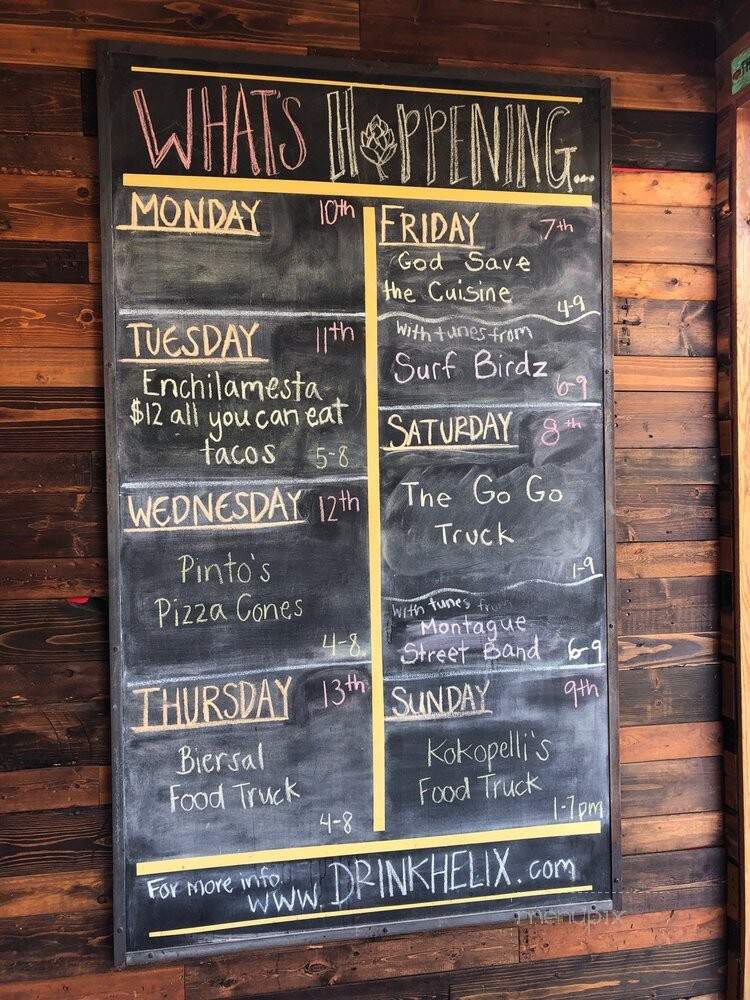 WHAT'S HOPPENING...
MONDAY 10th
TUESDAY 11th
Enchilamesta
$12 all you can eat
tacos 5-8
WEDNESDAY 12th
Pinto's
Pizza Cones
4-8
THURSDAY 13th
Biersal
Food Truck
4-8
FRIDAY 7th
God Save
the Cuisine
4-9
With tunes from
Surf Birdz
6-9
SATURDAY 8th
The Go Go
Truck
1-9
With tunes from
Montague
Street Band 6-9
SUNDAY 9th
Kokopelli's
Food Truck
1-7pm
For more info
www.DRINKHELIX.com
menupix